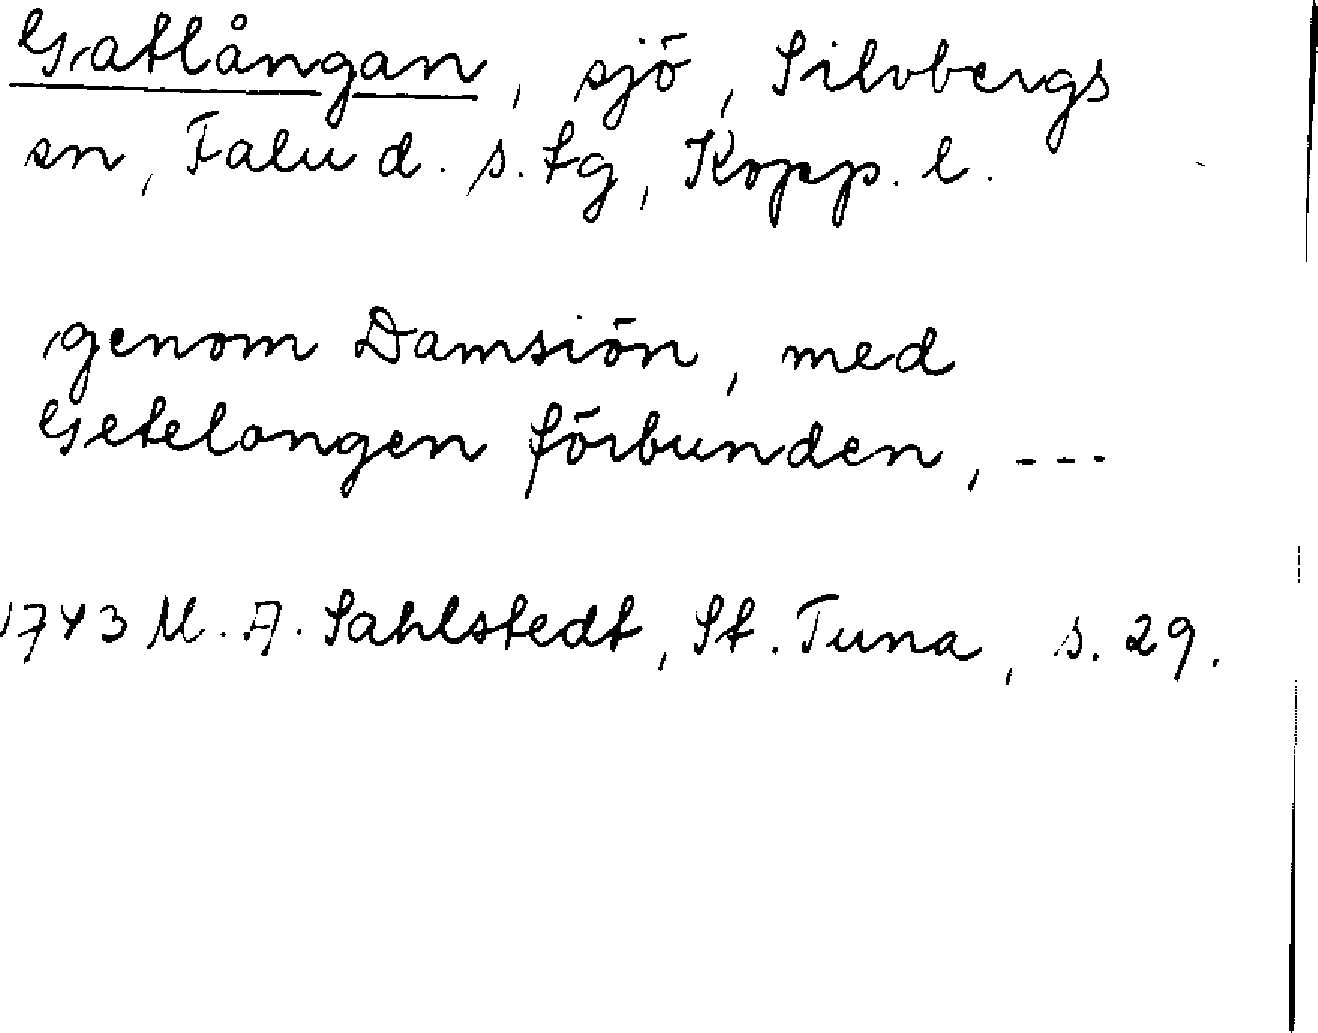 Gatlångan, sjö, Silvbergs
sn, Falu d. s. tg, Kopp. l.
genom Damsiön, med
Getelongen förbunden, ---
1743 M. A. Sahlstedt, St. Tuna, s. 29.